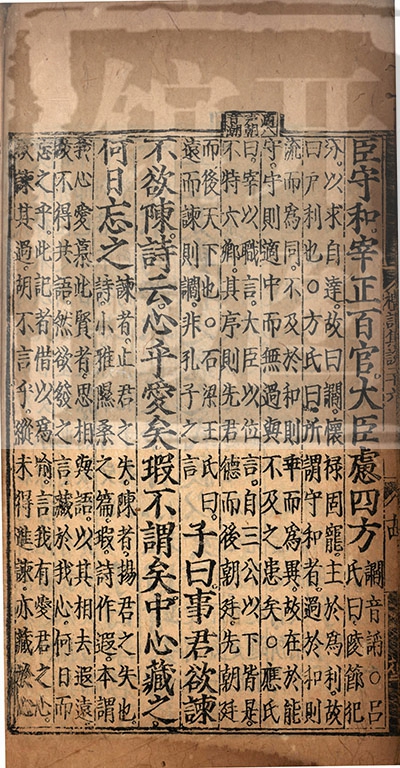 臣守和宰正百官大臣慮四方
讇音諂○呂
氏曰陵節犯
分以求自達故曰讇懷祿固寵主於爲利故
曰尸利也○方氏曰所謂守和者過於和則
流而爲同不及於和則乖而爲異故在於能
守守則適中而無過與不及之患矣○應氏
曰宰以職言大臣以位言自三公以下皆是
不特六卿其序則先君德而後朝廷先朝廷
而後天下也○石梁王氏曰
遠而諫則讇非孔子之言
子曰事君欲諫
不欲陳詩云心乎愛矣瑕不謂矣中心藏之
何日忘之
諫者止君之失陳者揚君之失也
詩小雅隰桑之篇瑕詩作遐本謂
我心愛慕此賢者思相與語以其相去遐遠
故不得共語然欲發之言藏於我心何日而
忘之乎此記者借以爲喻言我有愛君之心
欲諫其過胡不言乎縱未得進諫亦藏於心